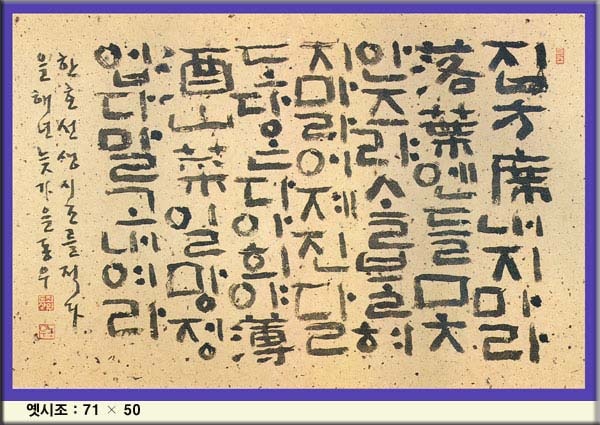 집方席내지마라
落葉엔들못
안즈랴솔불혀
지마라어제진달
도다온다아희야薄
酒山菜일망정
업다말고내여라
한호선생시조를적다
을해년늦가을동우
옛시조 : 71 × 50